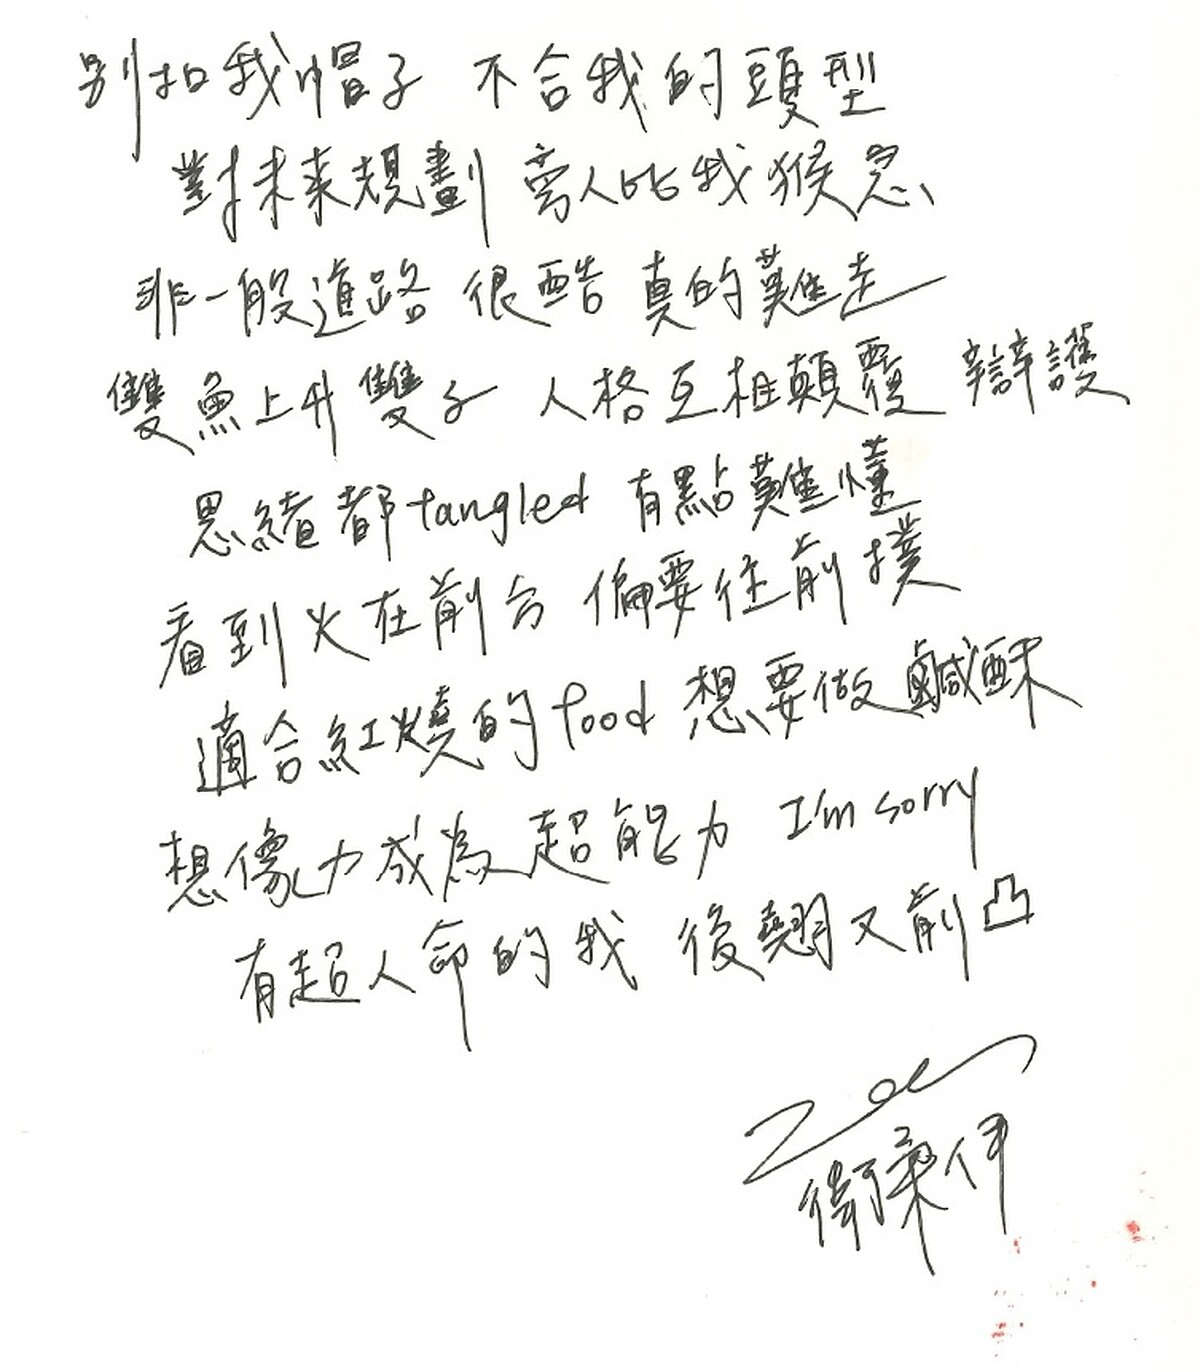 別扣我帽子 不合我的頭型
對未來規劃 旁人比我猴急
非一般道路 很酷 真的難走
雙魚上升雙子 人格互相顛覆 辯護
思緒都tangled 有點難懂
看到火在前台 偏要往前撲
適合紅燒的food 想要做鹹酥
想像力成為超能力 I'm sorry
有超人命的我 後翹又前凸
Zoe
衛秉伊